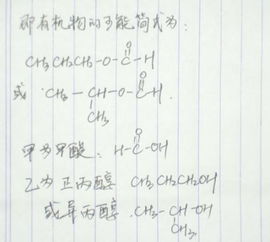 即有机物的可能简式为：
O
CH₃CH₂CH₂-O-C-H
或 CH₃-CH-O-C-H.
O
CH₃
O
甲为甲酸：H-C-OH
乙为正丙醇 CH₃CH₂CH₂OH
或异丙醇 CH₃-CH-OH
CH₃